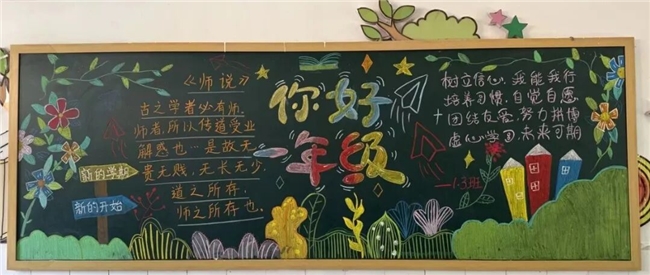 《师说》
古之学者必有师。
师者,所以传道受业
解惑也…是故无
贵无贱,无长无少,
道之所存,
师之所存也。
新的学期
新的开始
你好
一年级
树立信心,我能我行
培养习惯,自觉自愿
团结友爱,努力拼搏
虚心学习,未来可期
——1.3班